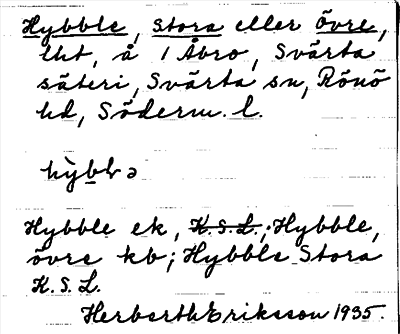 Hybble, Stora eller Övre,
lht, å 1 Åbro, Svärta
säteri, Svärta sn, Rönö
hd, Söderm. l.
hỳbḷə
Hybble ek, K.S.L.; Hybble,
övre kb; Hybble Stora
K.S.L.
Herbert Eriksson 1935.